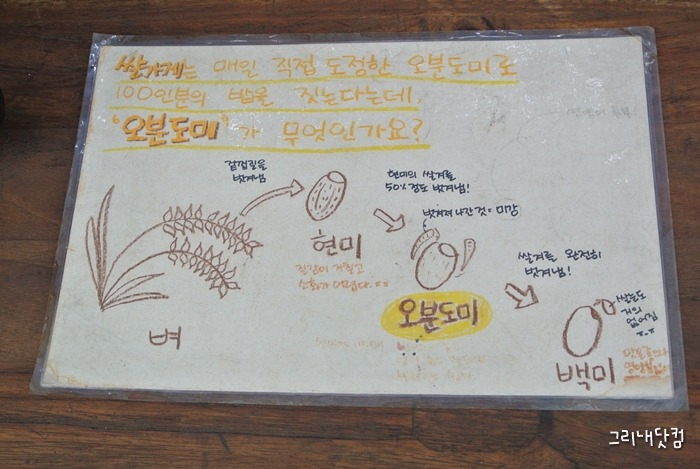 쌀가게는 매일 직접 도정한 오분도미로
100인분의 밥을 짓는다는데,
"오분도미"가 무엇인가요?
겉껍질을
벗겨냄
현미의 쌀겨를
50% 정도 벗겨냄!
벗겨져 나간 것 = 미강
현미
질감이 거칠고
소화가 어렵다.
쌀겨를 완전히
벗겨냄!
벼
오분도미
쌀눈도
거의
없어짐
ㅠ.ㅠ
백미
그리내닷컴